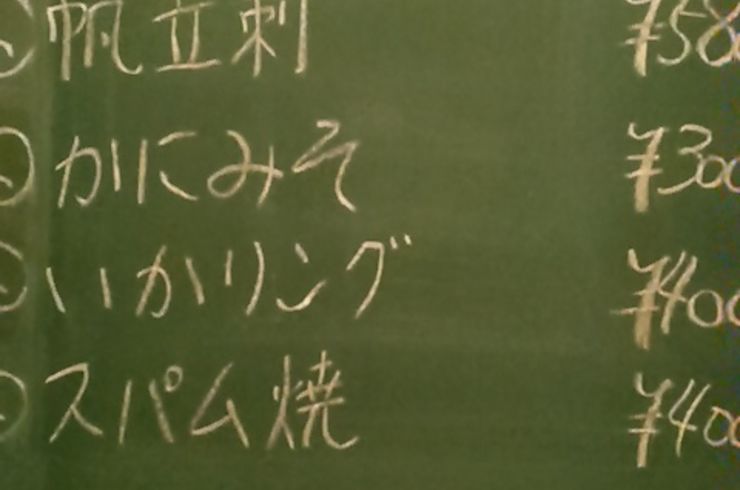 帆立刺 ¥580
かにみそ ¥300
いかリング ¥400
スパム焼 ¥400